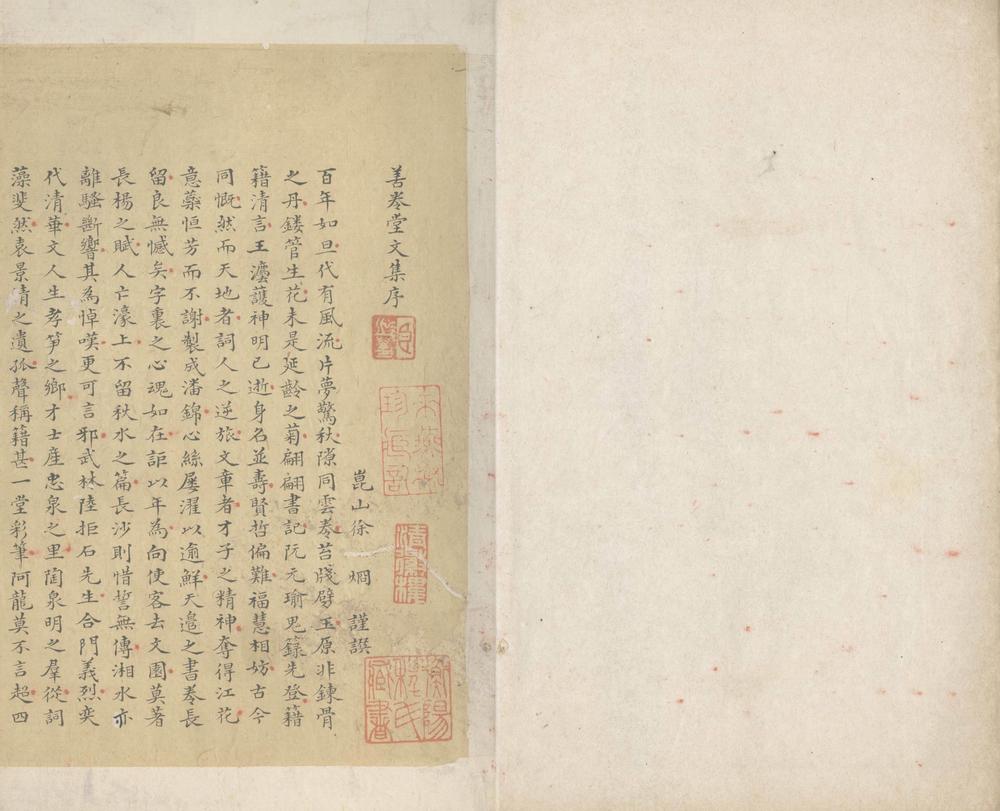 善卷堂文集序
崑山徐烱謹譔
百年如旦代有風流片夢驚秋隙同雲卷苔牋劈玉原非鍊骨
之丹鏤管生花未是延齡之菊翩翩書記阮元瑜鬼籙先登籍
籍清言王濛護神明已逝身名並壽賢哲偏難福慧相妨古今
同慨然而天地者詞人之逆旅文章者才子之精神奪得江花
意蘂恒芳而不謝製成潘錦心絲屢濯以逾鮮天邉之書卷長
留良無憾矣字裏之心魂如在詎以年為向使客去文園莫著
長楊之賦人亡濠上不留秋水之篇長沙則惜誓無傳湘水亦
離騷斷響其為悼嘆更可言邪武林陸拒石先生合門義烈奕
代清華文人生孝笋之鄉才士産忠泉之里陶泉明之羣從詞
藻斐然袁景倩之遺孤聲稱籍甚一堂彩筆阿龍莫不言超四